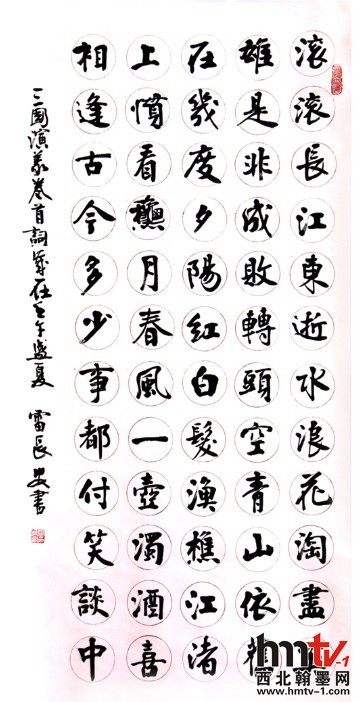 滚滚長江東逝水浪花淘盡
雄是非成敗轉頭空青山依
在幾度夕陽紅白髮漁樵江渚
上慣看龝月春風一壺濁酒喜
相逢古今多少事都付笑談中
三國演義卷首詞歲在壬午盛夏 雷長安書
hmtv-1
西北翰墨网
www.hmtv-1.com